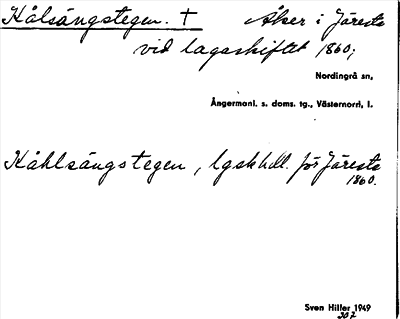 Kålsängstegen. † Åker i Järesta
vid lagaskiftet 1860;
Nordingrå sn,
Ångermanl. s. doms. tg., Västernorrl. l.
Kåhlsängstegen, lgskhdl. för Järesta
1860.
Sven Hiller 1949
207